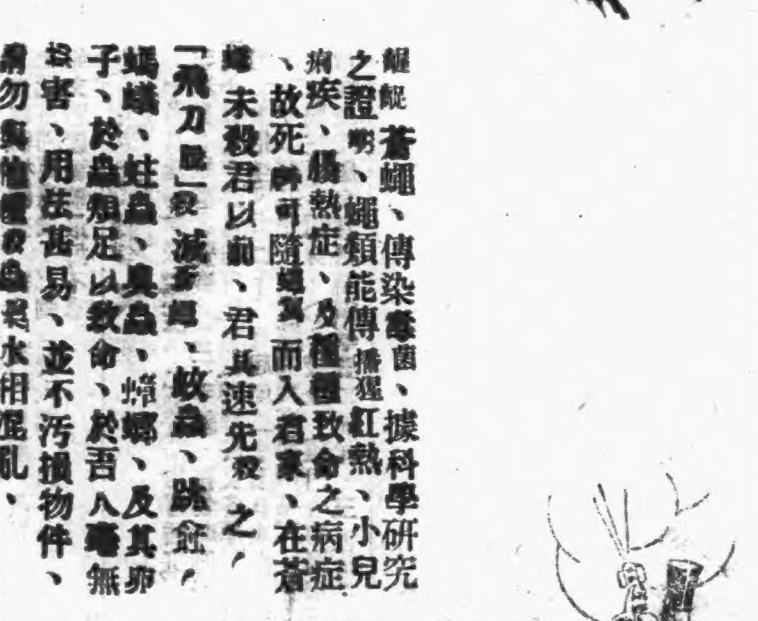 齷齪蒼蠅、傳染毒菌、據科學研究
之證明、蠅類能傳播猩紅熱、小兒
痢疾、腸熱症、及種種致命之病症
、故死神可隨蠅翼而入君家、在蒼
蠅未殺君以前、君其速先殺之、
「飛刀 」殺滅蒼蠅、蚊蟲、跳 、
螞蟻、蛀蟲、臭蟲、蟑螂、及其卵
子、於蟲類足以致命、於吾人毫無
害、用法甚易、並不污損物件、
請勿與他種殺蟲 水相混亂、